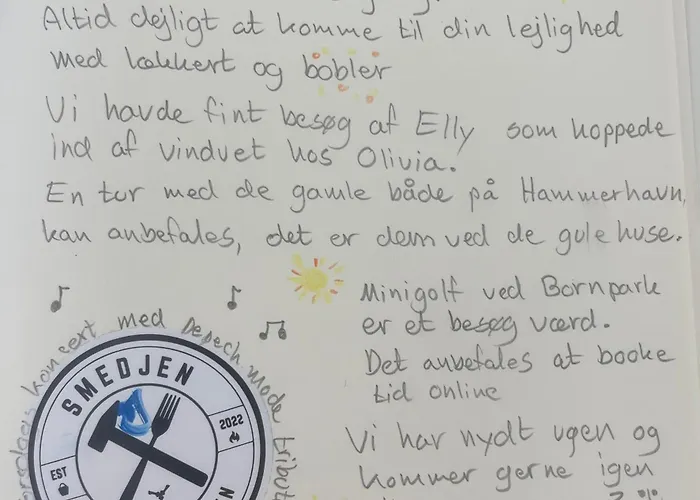 Altid dejligt at komme til din lejlighed
med lækkert og bobler
Vi havde fint besøg af Elly som hoppede
ind af vinduet hos Olivia.
En tur med de gamle både på Hammerhavn,
kan anbefales, det er dem ved de gule huse.
Minigolf ved Bornpark
er et besøg værd.
Det anbefales at booke
tid online
Vi har nydt ugen og
kommer gerne igen
koncert med Depech mode tribut
SMEDJEN
2022
EST